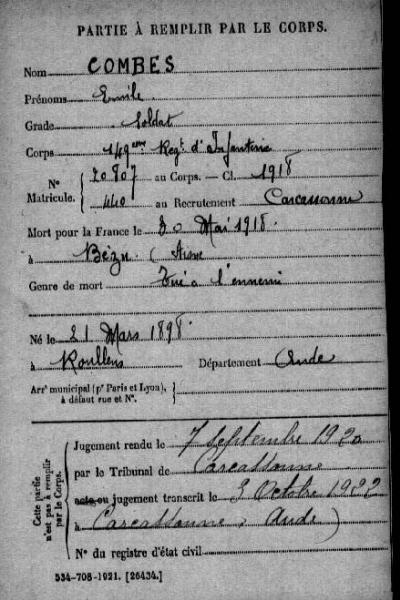 PARTIE À REMPLIR PAR LE CORPS.
Nom COMBES
Prénoms Emile
Grade Soldat
Corps 149ème Regt d'Infanterie
N° Matricule. 20.807 au Corps. — Cl. 1918
440 au Recrutement Carcassonne
Mort pour la France le 30 Mai 1918
à Bézu (Aisne
Genre de mort Tué à l'ennemi
Né le 21 Mars 1898
à Roullens Département Aude
Arrt municipal (pr Paris et Lyon), à défaut rue et N°.
Cette partie n'est pas à remplir par le Corps.
Jugement rendu le 7 Septembre 1920
par le Tribunal de Carcassonne
acte ou jugement transcrit le 3 Octobre 1922
à Carcassonne, Aude)
N° du registre d'état civil
534-708-1921. [26434.]